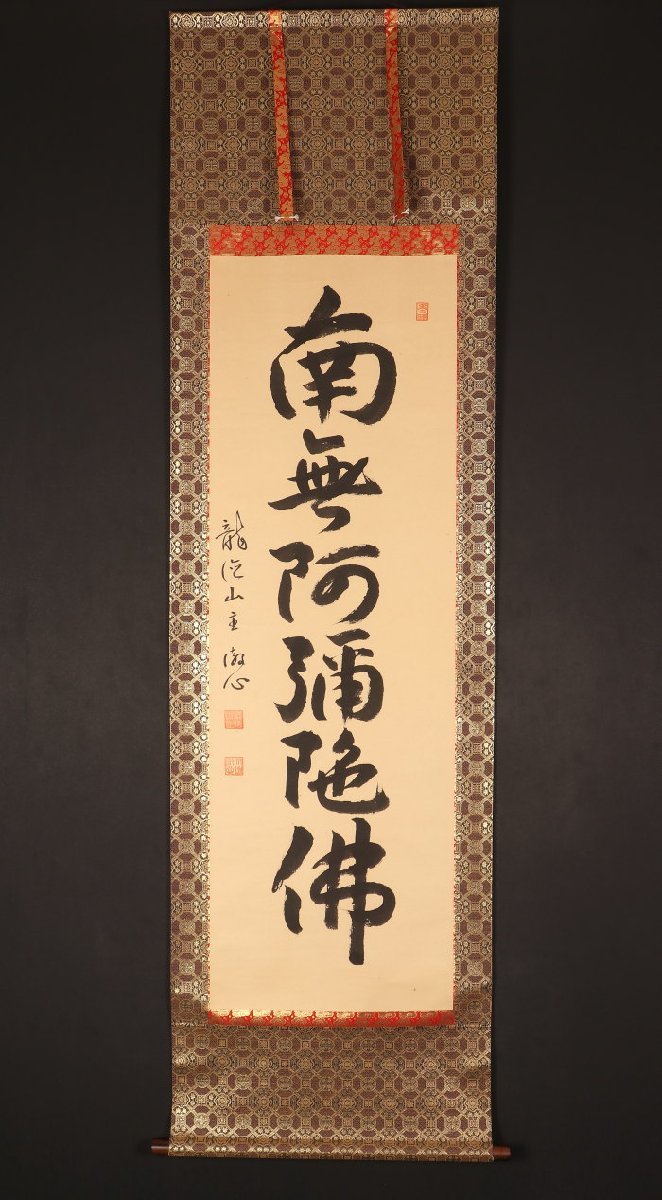 南無阿彌陀佛
龍泛山主 澂心